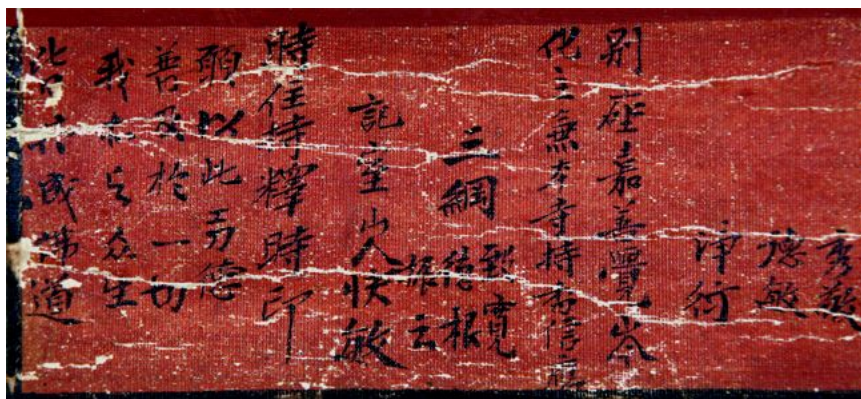 秀敏
德敏
淨行
別座嘉善覺岑
化主兼本寺持寺信
三綱
到寬
德根
振云
記室山人快敏
時住持釋時印
願以此功德
普及於一切
我等与众生
皆共成佛道